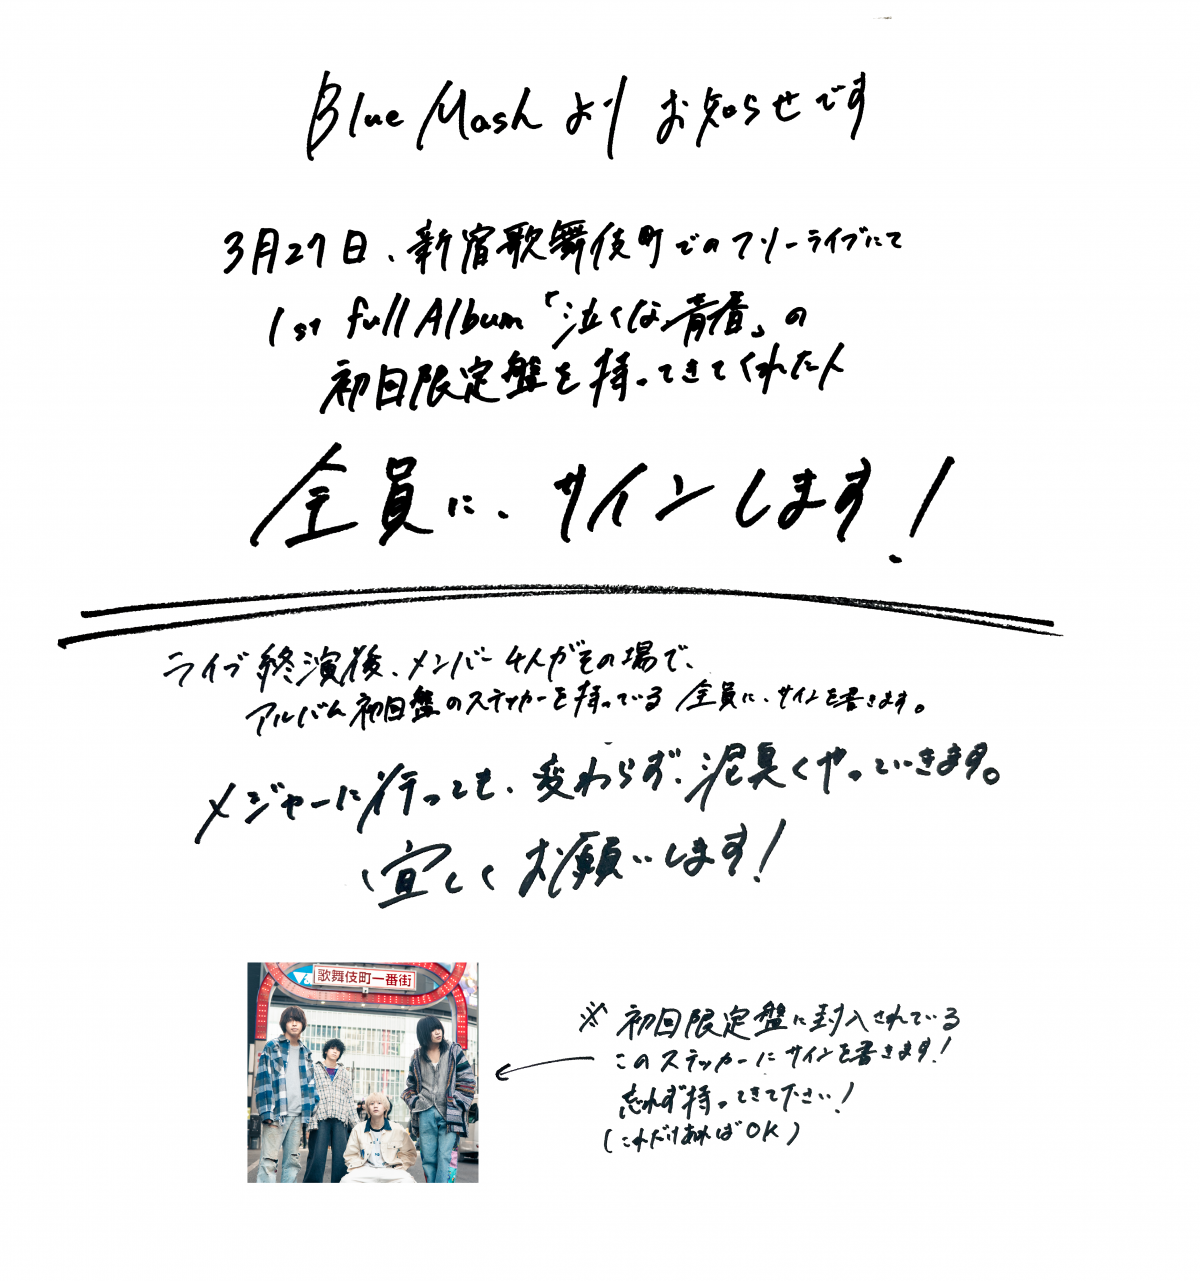 Blue Mash より お知らせです
3月27日、新宿歌舞伎町でのフリーライブにて
1st full Album「泣くな青春」の
初回限定盤を持ってきてくれた人
全員に、サインします！
ライブ終演後、メンバー4人がその場で、
アルバム初回盤のステッカーを持っている 全員に、サインを書きます。
メジャーに行っても、変わらず、泥臭くやっていきます。
宜しくお願いします！
歌舞伎町一番街
※ 初回限定盤に封入されている
このステッカーにサインを書きます！
忘れず持ってきて下さい！
(これだけあればOK)